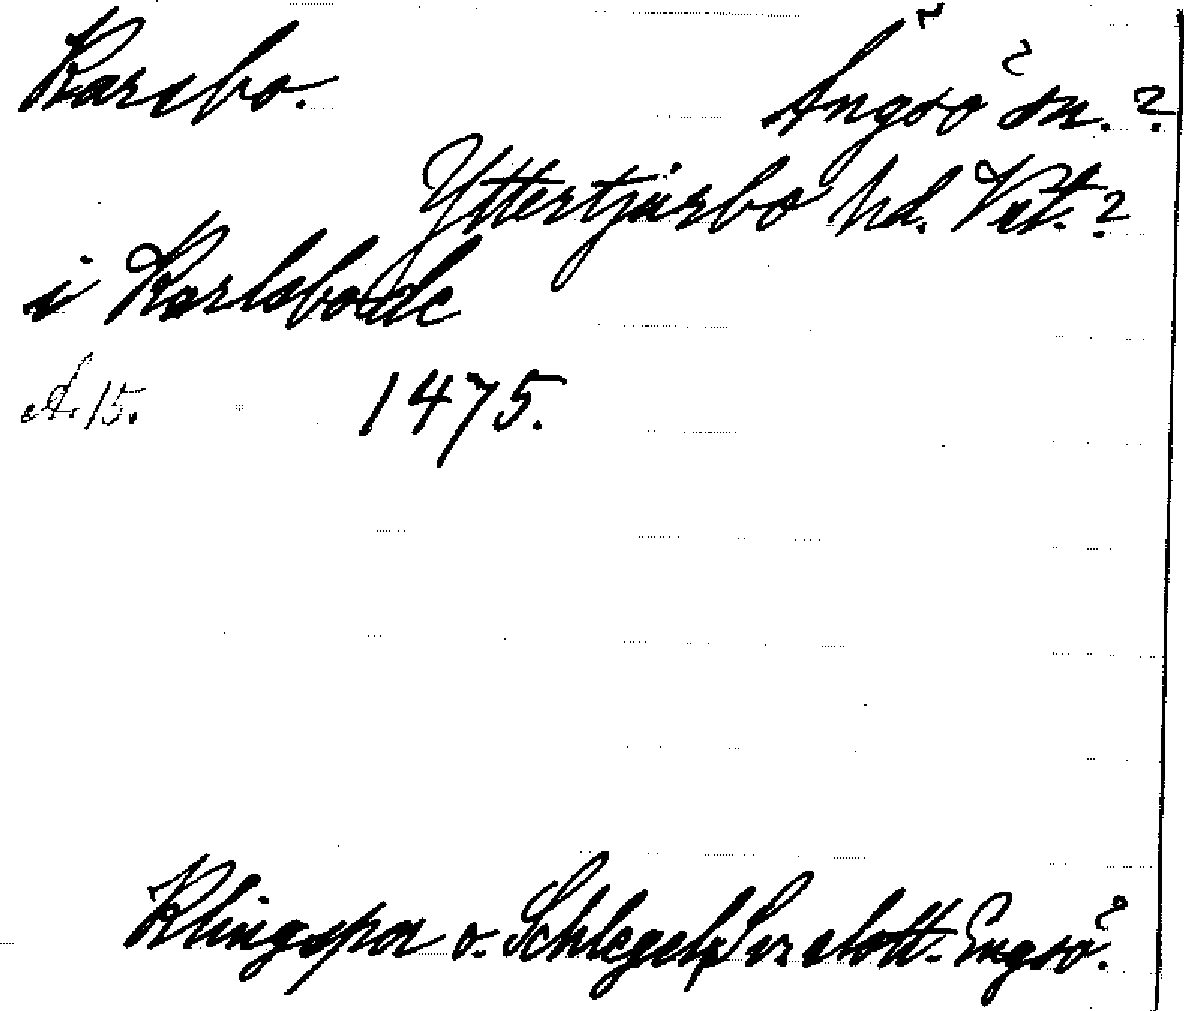 Karsbo.
Ängsö sn. ?
Yttertjurbo hd. Vst. ?
i Karlsbodhe
A. 15. 1475.
Klingspor o. Schlegel, Sv. slott. Engsö.